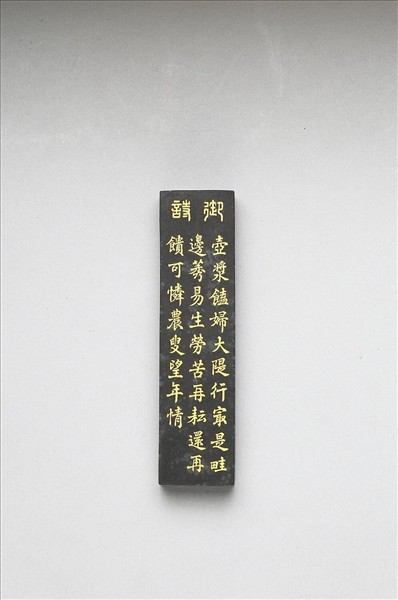 御詩
壺漿饁婦大隄行㝡是畦
邊莠易生勞苦再耘還再
饋可憐農叟望年情